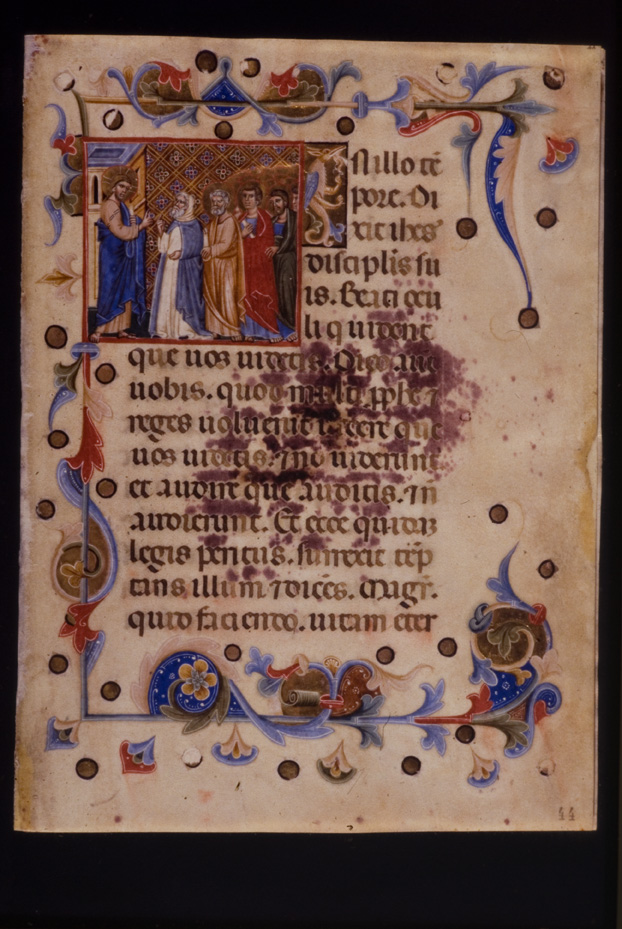 In illo tē
pore. Di
xit ihesꝰ
discipulis su
is. Beati ocu
li q uident
que uos uidetis. Dico aut̄
uobis. quod multi ꝓphē ⁊
reges uoluerūt uidere que
uos uidetis. ⁊ nō uiderunt.
et audire que auditis. ⁊ ñ
audierunt. Et ecce quidaʒ
legis peritus. surrexit tēp
tans illum ⁊ dicēs. Magr̄.
quid faciendo. uitam eter
44